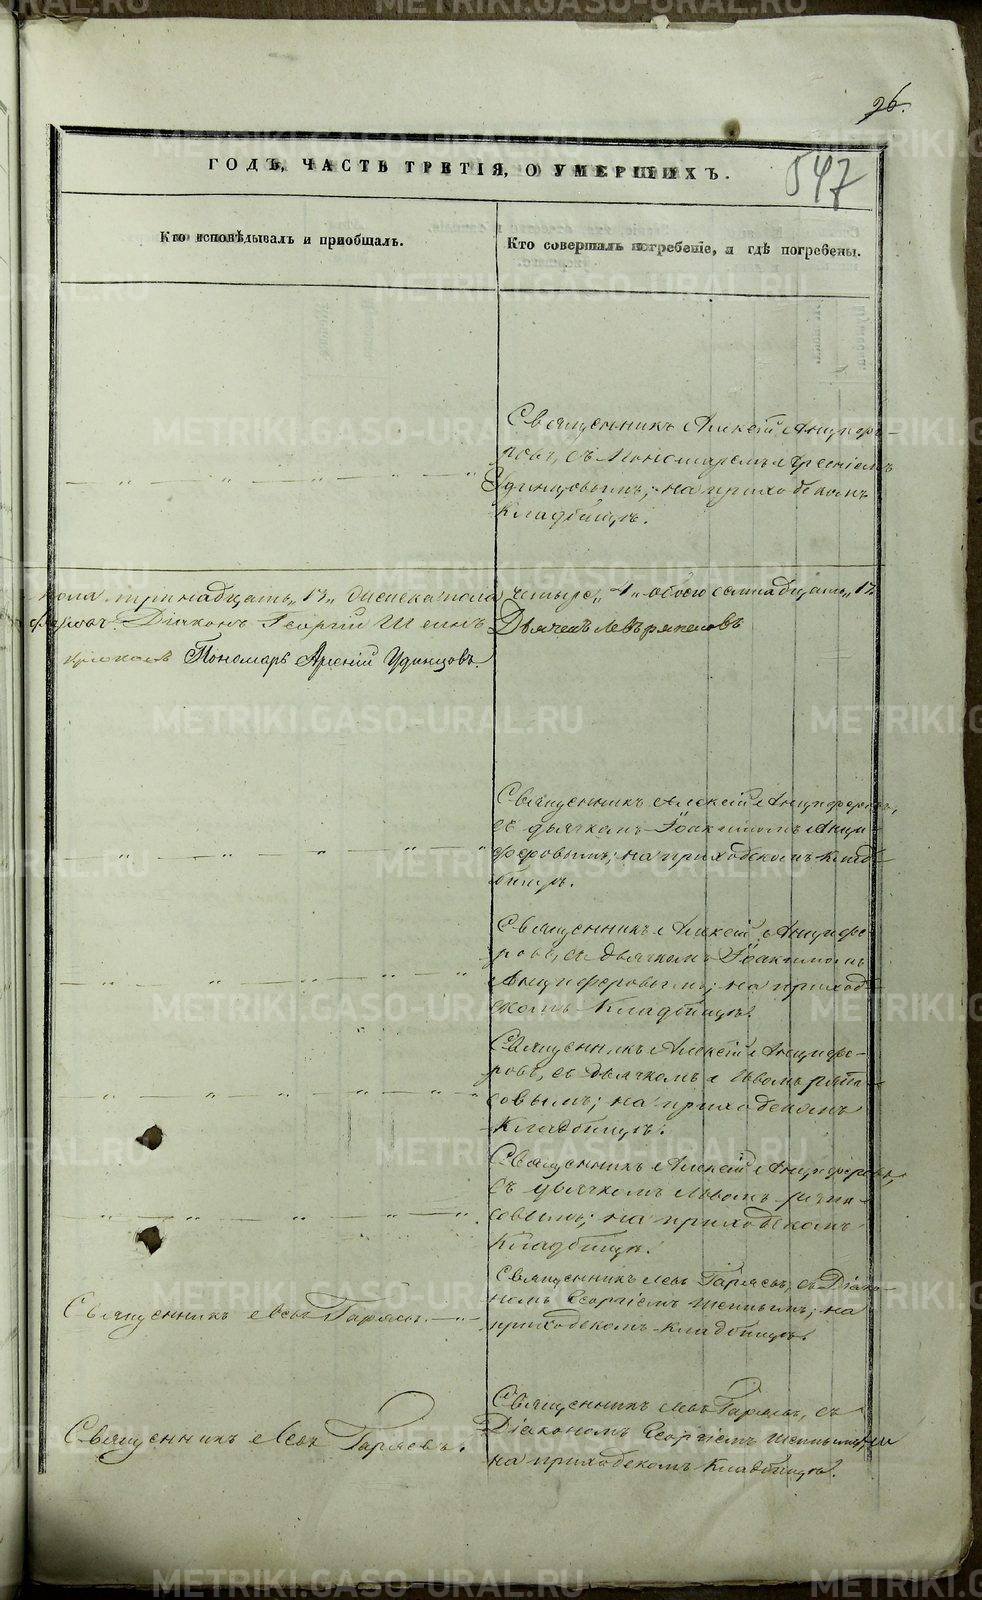 METRIKI.GASO-URAL.RU
96.
547
ГОДЪ, ЧАСТЬ ТРЕТІЯ, О УМЕРШИХЪ.
Кто исповѣдывалъ и пріобщалъ.
Кто совершалъ погребеніе, и гдѣ погребены.
Священникъ Алексій Анциферо-
ровъ, съ Пономаремъ Арсеніемъ
Удинцовымъ; на приходскомъ
кладбищѣ.
тринадцать „13„ женска пола четыре „4„ обоего семнадцать „17
Діаконъ Георгій Шеинъ
Дьячекъ Левъ
Пономарь Арсеній Удинцовъ.
Священникъ Алексій Анциферовъ,
съ дьячкомъ Іоакимомъ Анци-
феровымъ; на приходскомъ клад-
бищѣ.
Священникъ Алексій Анцифе-
ровъ, съ дьячкомъ Іоакимомъ
Анциферовымъ; на приход-
скомъ кладбищѣ.
Священникъ Алексій Анцифе-
ровъ, съ дьячкомъ Львомъ
совымъ; на приходскомъ
кладбищѣ.
Священникъ Алексій Анциферовъ,
съ дьячкомъ Львомъ
совымъ; на приходскомъ
кладбищѣ.
Священникъ Левъ Гаряевъ.
Священникъ Левъ Гаряевъ, съ Діако-
номъ Георгіемъ Шеинымъ; на
приходскомъ кладбищѣ.
Священникъ Левъ Гаряевъ.
Священникъ Левъ Гаряевъ, съ
Діакономъ Георгіемъ Шеинымъ;
на приходскомъ кладбищѣ.